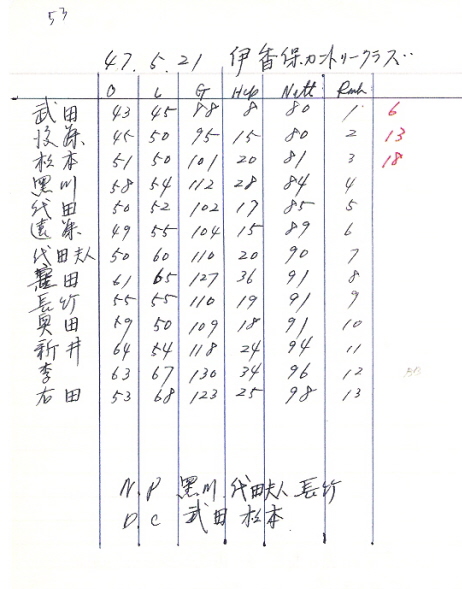 53
47. 5. 21 伊香保カントリークラブ
O L G Hcp Nett Rank
武田 43 45 88 8 80 1 6
後藤 45 50 95 15 80 2 13
松本 51 50 101 20 81 3 18
黒川 58 54 112 28 84 4
代田 50 52 102 17 85 5
遠藤 49 55 104 15 89 6
代田夫人 50 60 110 20 90 7
田 61 65 127 36 91 8
長竹 55 55 110 19 91 9
奥田 59 50 109 18 91 10
新井 64 54 118 24 94 11
李 63 67 130 34 96 12
右田 53 68 123 25 98 13
N.P 黒川 代田夫人 長竹
D.C 武田 松本